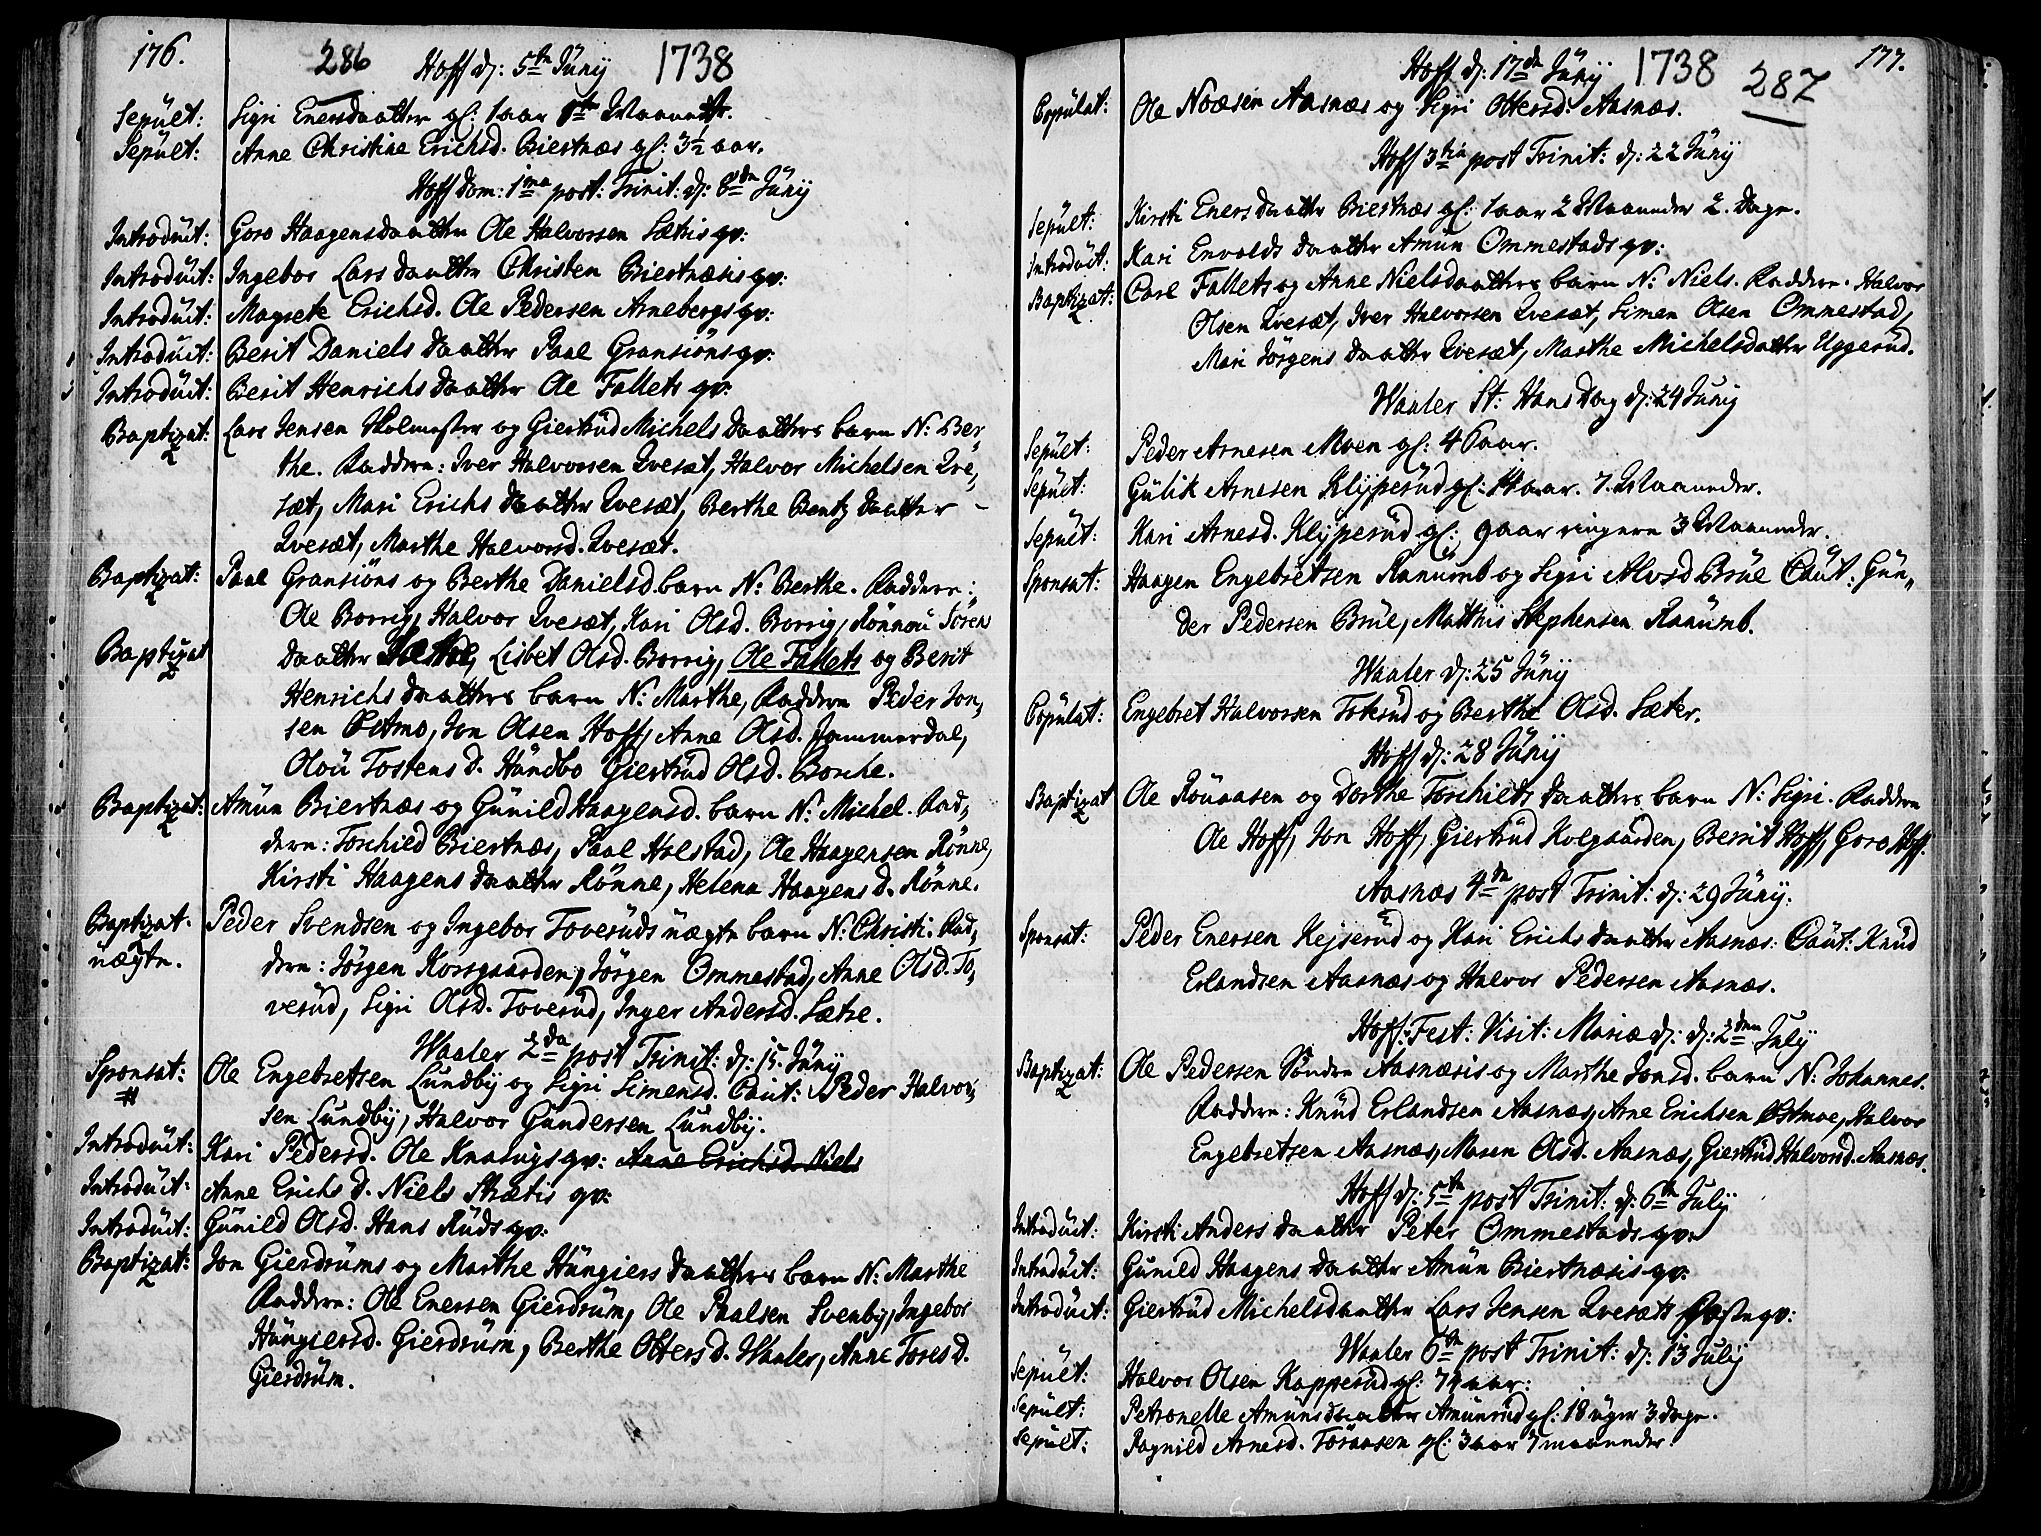 176.
286
Hoff d: 5te Junÿ 1738
Sepult: Sigri Enersdaatter gl: 1 aar Maanett.
Sepult: Anne Christine Erichsd. Biertnæs gl: 3½ aar.
Hoff Dom: 1ma post: Trinit: d: 8de Junÿ
Introduit: Goro Haagensdaatter Ole Halvorsen Sætris qv:
Introduit: Ingebor Larsdaatter Christen Biertnæsis qv:
Introduit: Magrete Erichsd. Ole Pedersen Arnebergs qv:
Introduit: Berit Danielsdaatter Paal Gransiöns qv:
Introduit: Berit Henrichsdaatter Ole Fallets qv:
Baptizat: Lars Jensen Skolmester og Giertrud Michelsdaatters barn N: Ber,
the. Faddere: Iver Halvorsen Qvesæt, Halvor Michelsen Qve,
sæt, Mari Erichsdaatter Qvesæt, Berthe Bentzdaatter
Qvesæt, Marthe Halvorsd. Qvesæt.
Baptizat: Paal Gransiöns og Berthe Danielsd. barn N: Berthe. Faddere:
Ole Borrig, Halvor Qvesæt, Kari Olsd. Borrig, Rönnou Sören
Baptizat daatter Lisbet Olsd. Borrig, Ole Fallets og Berit
Henrichsdaatters barn N: Marthe, Faddere Peder Jon,
sen Östmo, Jon Olsen Hoff, Anne Olsd. Jammerdal,
Olou Tostensd. Hundbo Giertrud Olsd. Borche.
Baptizat: Amun Biertnæs og Gunild Haagensd. barn N: Michel. Fad,
dere: Torchild Biertnæs, Paal Halstad, Ole Haagensen Rönne,
Kirsti Haagensdaatter Rönne, Helena Haagensd. Rönne.
Baptizat. Peder Svendsen og Ingebor Toveruds uægte barn N: Christi. Fad,
uægte. dere: Jörgen Korsgaarden, Jörgen Ommestad, Anne Olsd. To,
verud, Sigri Olsd. Toverud, Inger Andersd. Sætre.
Waaler 2da post Trinit: d: 15 Junÿ
Sponsat: Ole Engebretsen Lundbÿ og Sigri Simensd. Caut: Peder Halvor,
sen Lundbÿ, Halvor Gundersen Lundbÿ.
Introduit: Kari Pedersd. Ole Knalugs qv: Anne Erichsd. Niels
Introduit: Anne Erichsd. Niels Strætis qv:
Introduit: Gunild Olsd. Hans Ruds qv:
Baptizat: Jon Gierdrums og Marthe Hungiersdaatters barn N: Marthe
Faddere: Ole Enersen Gierdrum, Ole Paalsen Svenby, Ingebor
Hungiersd. Gierdrum, Berthe Ottersd. Waaler, Anne Toresd.
Gierdrum.
177.
287
Hoff d: 17de Junÿ 1738
Copulat: Ole Noæsen Aasnæs og Sigri Ottersd. Aasnæs.
Hoff 3tia post Trinit: d: 22 Junÿ
Sepult: Kirsti Enersdaatter Biertnæs gl: 1 aar 2 Maaneder 2. Dage.
Introduit: Kari Envoldsdaatter Amun Ommestads qv:
Baptizat: Carl Fallets og Anne Nielsdaatters barn N: Niels. Faddere. Halvor
Olsen Qvesæt, Iver Halvorsen Qvesæt, Simen Olsen Ommestad,
Mari Jörgensdaatter Qvesæt, Marthe Michelsdatter Uggerud.
Waaler St: Hans Dag d: 24 Junÿ
Sepult: Peder Arnesen Moen gl: 46 aar.
Sepult: Gulik Arnesen Klÿperud gl: 14 aar. 7. Maaneder.
Sepult: Kari Arnesd. Klÿperud gl: 9 aar ringere 3 Maaneder.
Sponsat: Haagen Engebretsen Raaumb og Sigri Alvsd Brue Caut: Gun,
der Pedersen Brue, Matthis Stephensen Raaumb.
Waaler d: 25 Junÿ
Copulat: Engebret Halvorsen Toksud og Berthe Olsd. Sæter.
Hoff d: 28 Junÿ
Baptizat Ole Rouaasen og Dorthe Torchiltsdaatters barn N: Sigri. Faddere
Ole Hoff, Jon Hoff, Giertrud Kolgaarden, Berit Hoff, Goro Hoff.
Aasnæs 4de post Trinit: d: 29 Junÿ.
Sponsat: Peder Enersen Kejserud og Kari Erichsdaatter Aasnæs. Caut: Knud
Erlandsen Aasnæs og Halvor Pedersen Aasnæs.
Hoff: Fest: Visit: Mariæ d: d: 2den July
Baptizat: Ole Pedersen Söndre Aasnæsis og Marthe Jonsd. barn N: Johannes.
Faddere: Knud Erlandsen Aasnæs, Arne Erichsen Östmoe, Halvor
Engebretsen Aasnæs, Maren Olsd. Aasnæs, Giertrud Halvorsd. Aasnæs.
Hoff d: 5te post Trinit: d: 6te Julÿ
Introduit: Kirsti Andersdaatter Peter Ommestads qv:
Introduit: Gunild Haagensdaatter Amun Biertnæsis qv:
Introduit: Giertrud Michelsdaatter Lars Jensen Qvesæts qv:
Waaler 6te post Trinit: d: 13 Julÿ
Sepult: Halvor Olsen Kapperud gl: 74 aar:
Sepult: Petronelle Amunsdaatter Amunrud gl: 18 uger 3 dage.
Sepult: Ragnild Arnesd. Toraasen gl: 3 aar 7 maaneder.